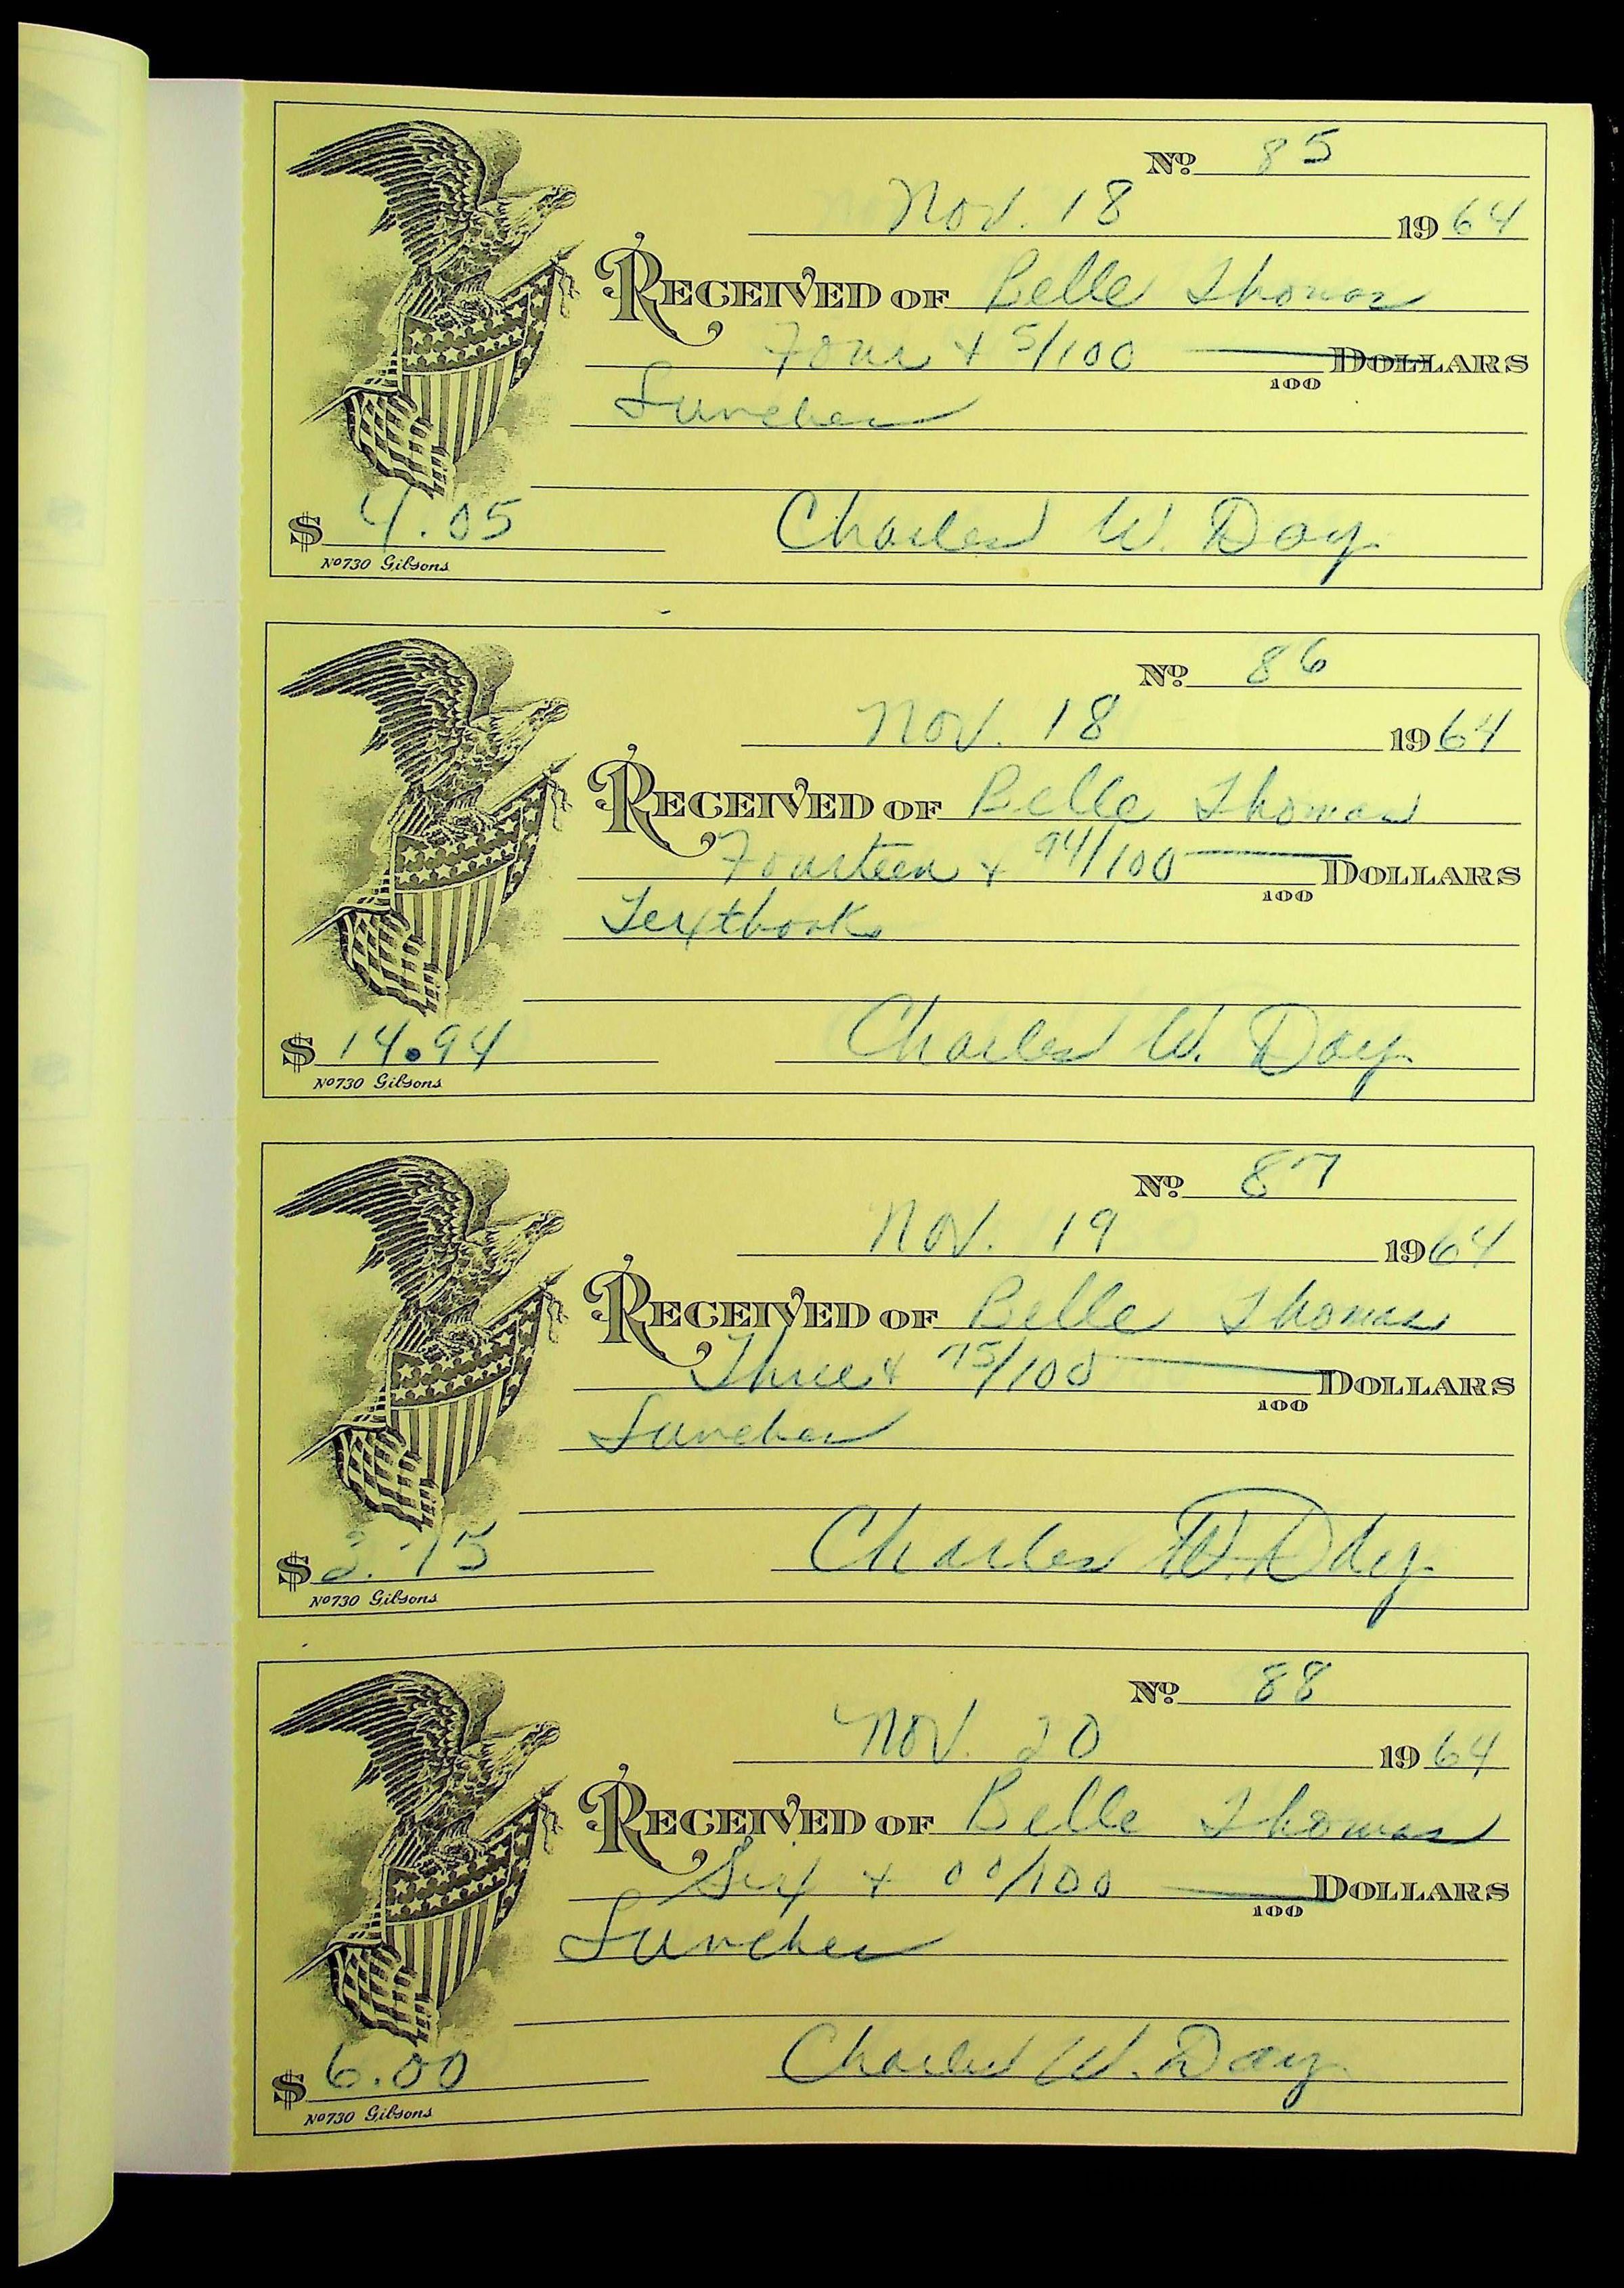 No. 85
Nov. 18 1964
RECEIVED OF Belle Thomas
Four + 5/100 DOLLARS
100
Lunches
$ 4.05 Charles W. Day
No 730 Gibsons
No. 86
Nov. 18 1964
RECEIVED OF Belle Thomas
Fourteen + 94/100 DOLLARS
100
Textbooks
$ 14.94 Charles W. Day
No 730 Gibsons
No. 87
Nov. 19 1964
RECEIVED OF Belle Thomas
Three + 75/100 DOLLARS
100
Lunches
$ 3.75 Charles W. Day
No 730 Gibsons
No. 88
Nov. 20 1964
RECEIVED OF Belle Thomas
Six + 00/100 DOLLARS
100
Lunches
$ 6.00 Charles W. Day
No 730 Gibsons